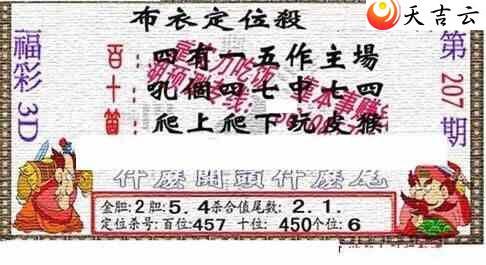 天吉云
布衣定位殺
福彩3D
第207期
百: 四有一五作主場
十: 吼個四七中七四
爬上爬下玩皮猴
什麽開頭什麽尾
金胆:2胆:5.4杀合值尾数:2.1.
定位杀号:百位457 十位:450个位:6